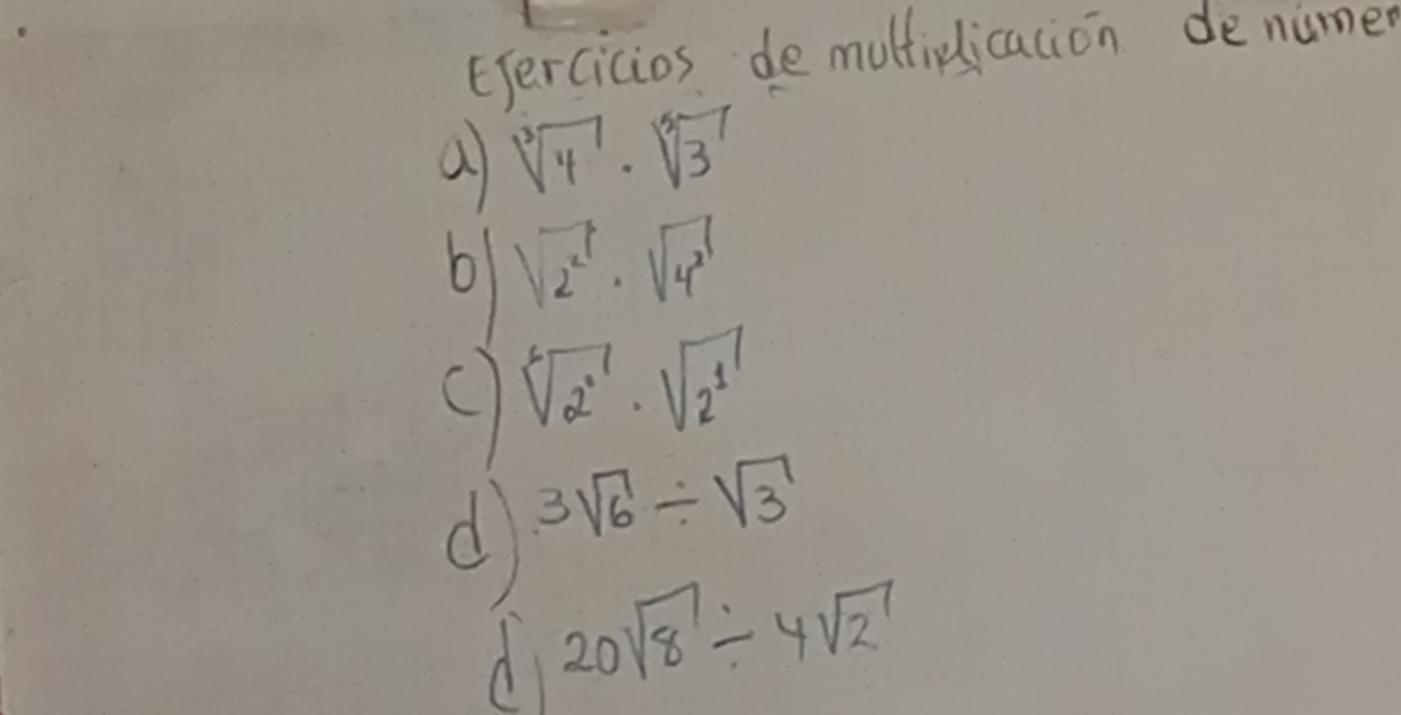 Ejercicios de multiplicación de númer
a) ∛4 · ∛3
b) √2² · √4²
c) √2² · √2¹
d) 3√6 ÷ √3
d) 20√8 ÷ 4√2